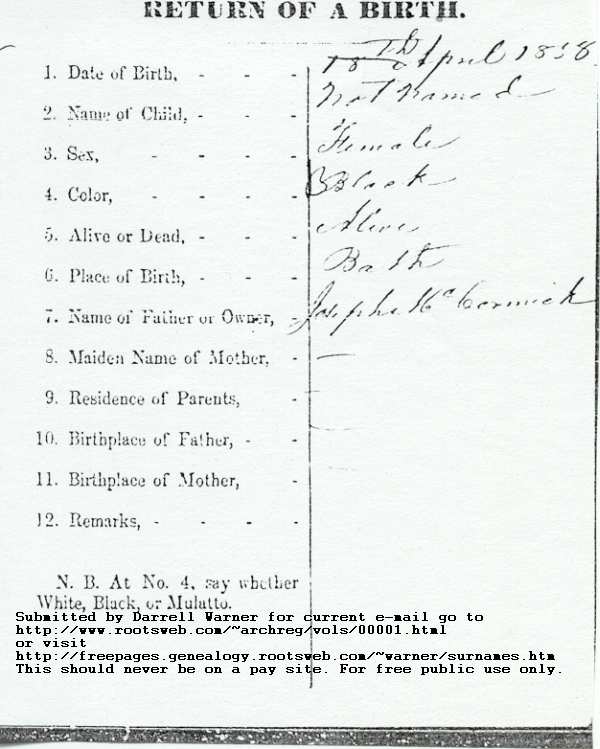 RETURN OF A BIRTH.
1. Date of Birth, - - - 18TH April 1858
2. Name of Child, - - - Not Named
3. Sex, - - - - Female
4. Color, - - - - Black
5. Alive or Dead, - - - Alive
6. Place of Birth, - - - Bath
7. Name of Father or Owner, - Joseph McCormick
8. Maiden Name of Mother, - —
9. Residence of Parents, -
10. Birthplace of Father, - -
11. Birthplace of Mother, -
12. Remarks, - - - -
N. B. At No. 4, say whether
White, Black, or Mulatto.
Submitted by Darrell Warner for current e-mail go to
http://www.rootsweb.com/~archreg/vols/00001.html
or visit
http://freepages.genealogy.rootsweb.com/~warner/surnames.htm
This should never be on a pay site. For free public use only.